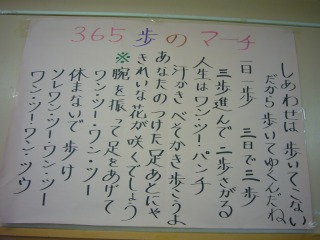 365歩のマーチ
しあわせは 歩いてこない
だから歩いてゆくんだね
一日一歩 三日で三歩
三歩進んで 二歩さがる
人生はワン・ツー・パンチ
汗かき べそかき 歩こうよ
あなたのつけた足あとにゃ
きれいな花が咲くでしょう
※腕を振って足をあげて
ワン・ツー・ワン・ツー
休まないで 歩け
ソレワン・ツー・ワン・ツー
ワン・ツー・ワン・ツウ